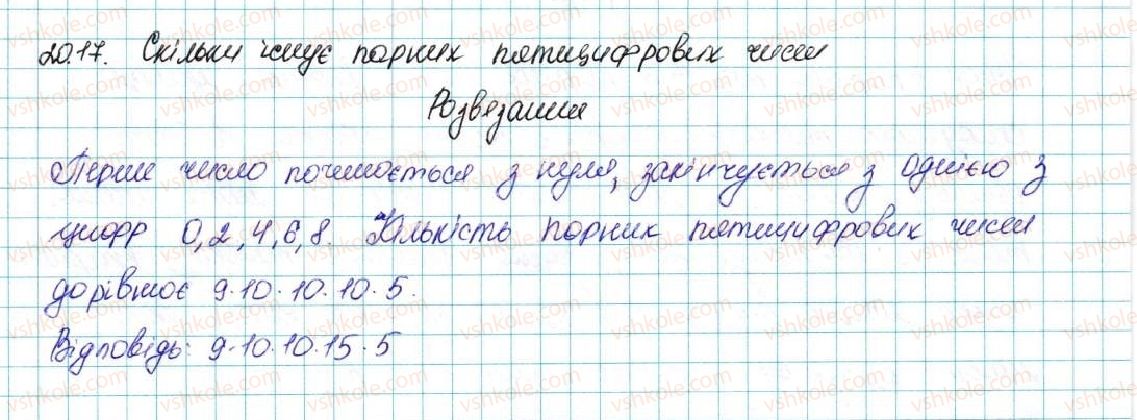 20.17. Скільки існує парних пятицифрових чисел
Розвязання
Перше число починається з нуля, закінчується з однією з
цифр 0, 2, 4, 6, 8. Кількість парних пятицифрових чисел
дорівнює 9·10·10·10·5.
Відповідь: 9·10·10·15·5